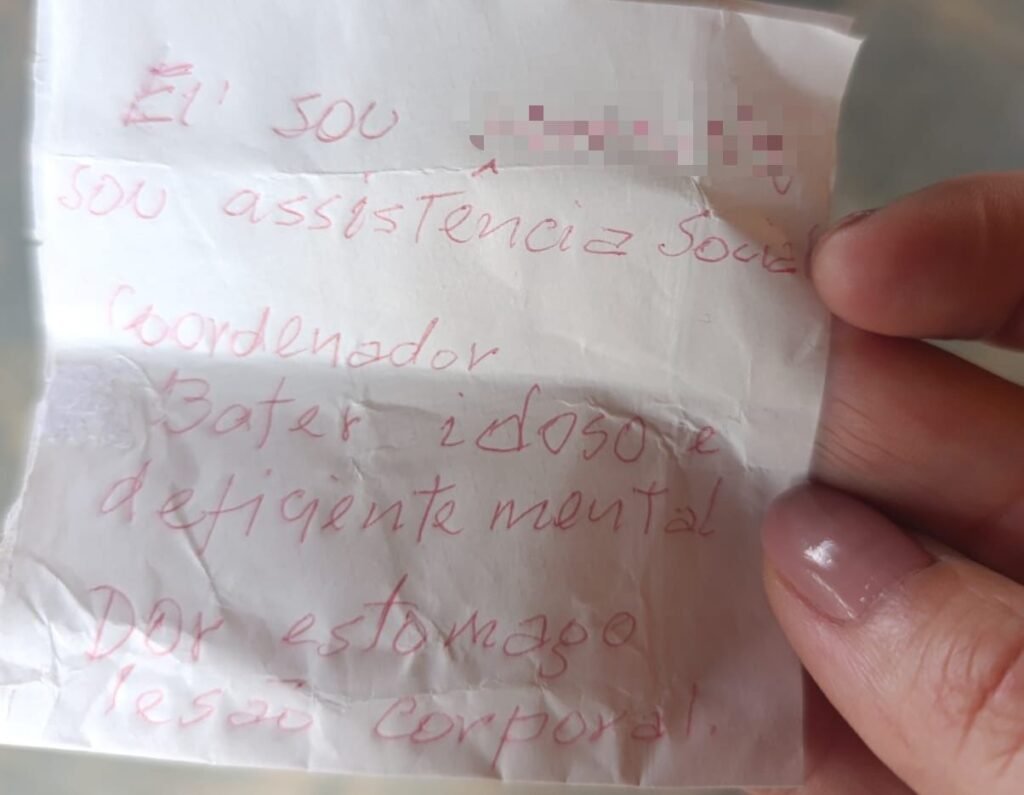 Eu sou
sou assistência Social
Coordenador
Bater idoso e
deficiente mental
Dor estomago
lesão corporal.